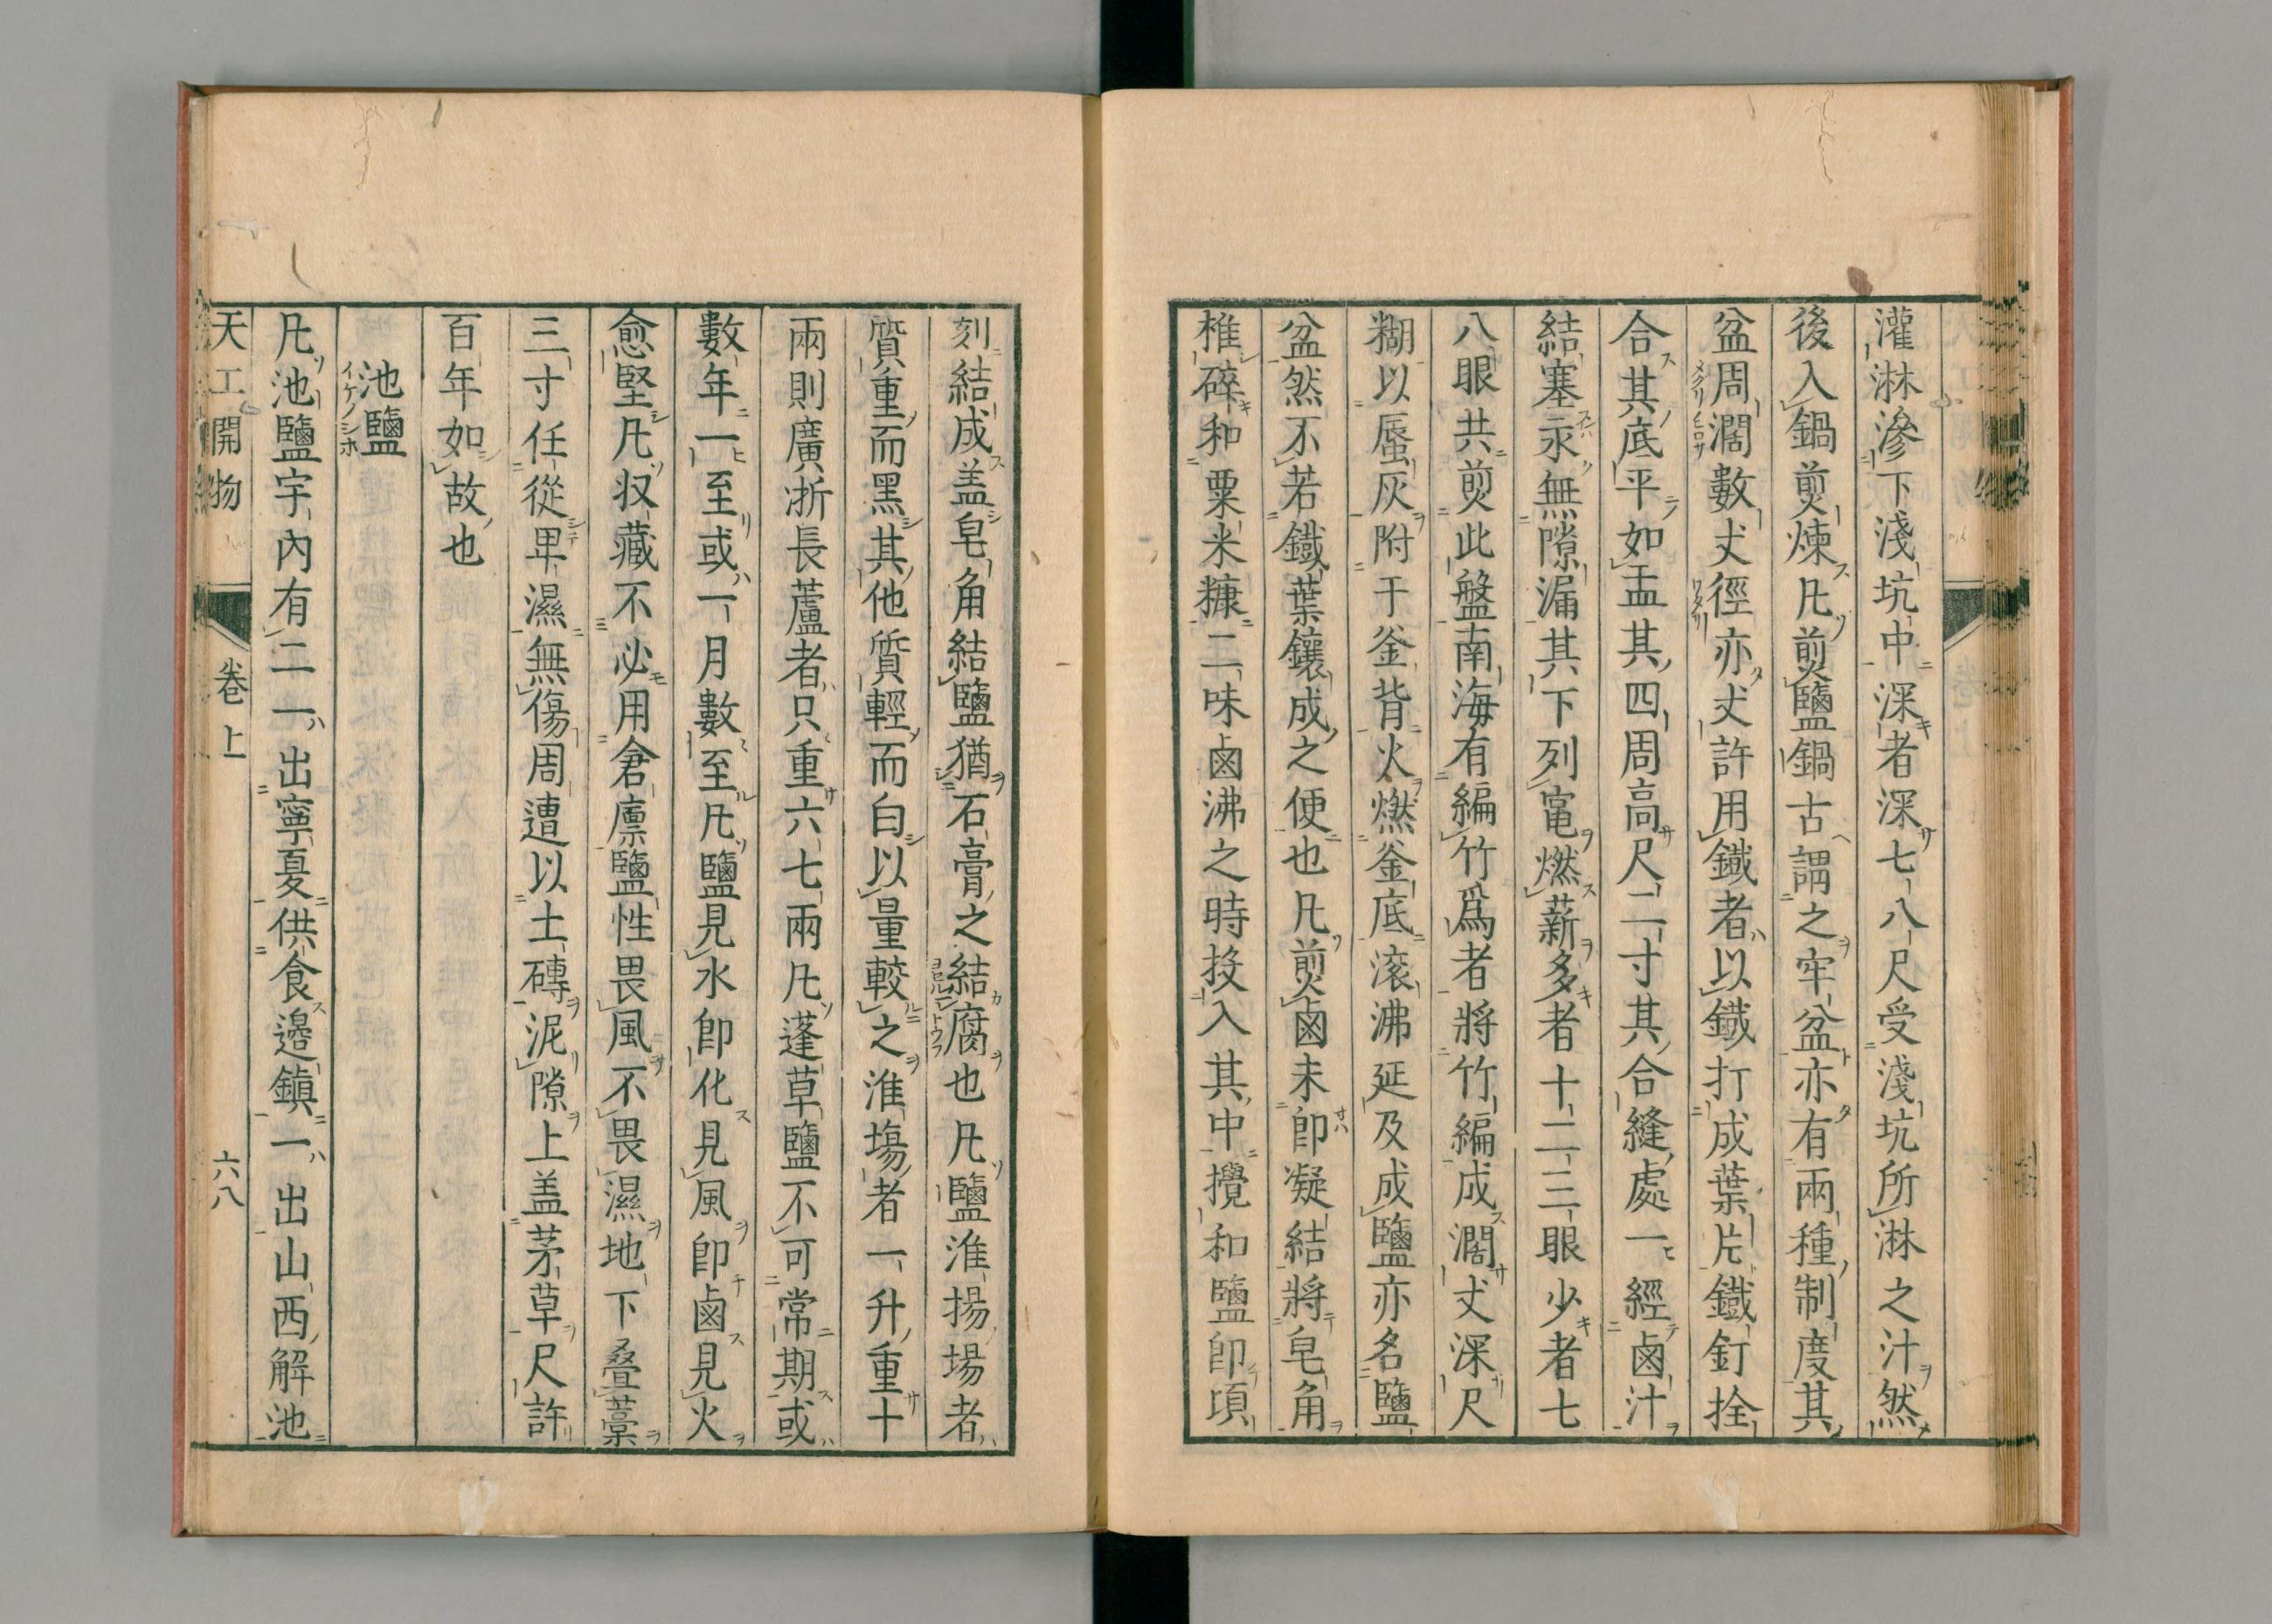 灌淋滲下淺坑中深者深七八尺受淺坑所淋之汁然
後入鍋煎煉凡煎鹽鍋古謂之牢盆亦有兩種制度其
盆周濶數丈徑亦丈許用鐵者以鐵打成葉片鐵釘拴
合其底平如盂其四周高尺二寸其合縫處一經鹵汁
結塞永無隙漏其下列竈燃薪多者十二三眼少者七
八眼共煎此盤南海有編竹爲者將竹編成濶丈深尺
糊以蜃灰附于釜背火燃釜底滚沸延及成鹽亦名鹽
盆然不若鐵葉鑲成之便也凡煎鹵未卽凝結將皂角
椎碎和粟米糠二味鹵沸之時投入其中攪和鹽卽頃
刻結成盖皂角結鹽猶石膏之結腐也凡鹽淮揚場者
質重而黑其他質輕而白以量較之淮塲者一升重十
兩則廣浙長蘆者只重六七兩凡蓬草鹽不可常期或
數年一至或一月數至凡鹽見水卽化見風卽鹵見火
愈堅凡収藏不必用倉廪鹽性畏風不畏濕地下叠藁
三寸任從卑濕無傷周遭以土磚泥隙上盖茅草尺許
百年如故也
池鹽
凡池鹽宇內有二一出寧夏供食邊鎮一出山西解池
天工開物 卷上 六八